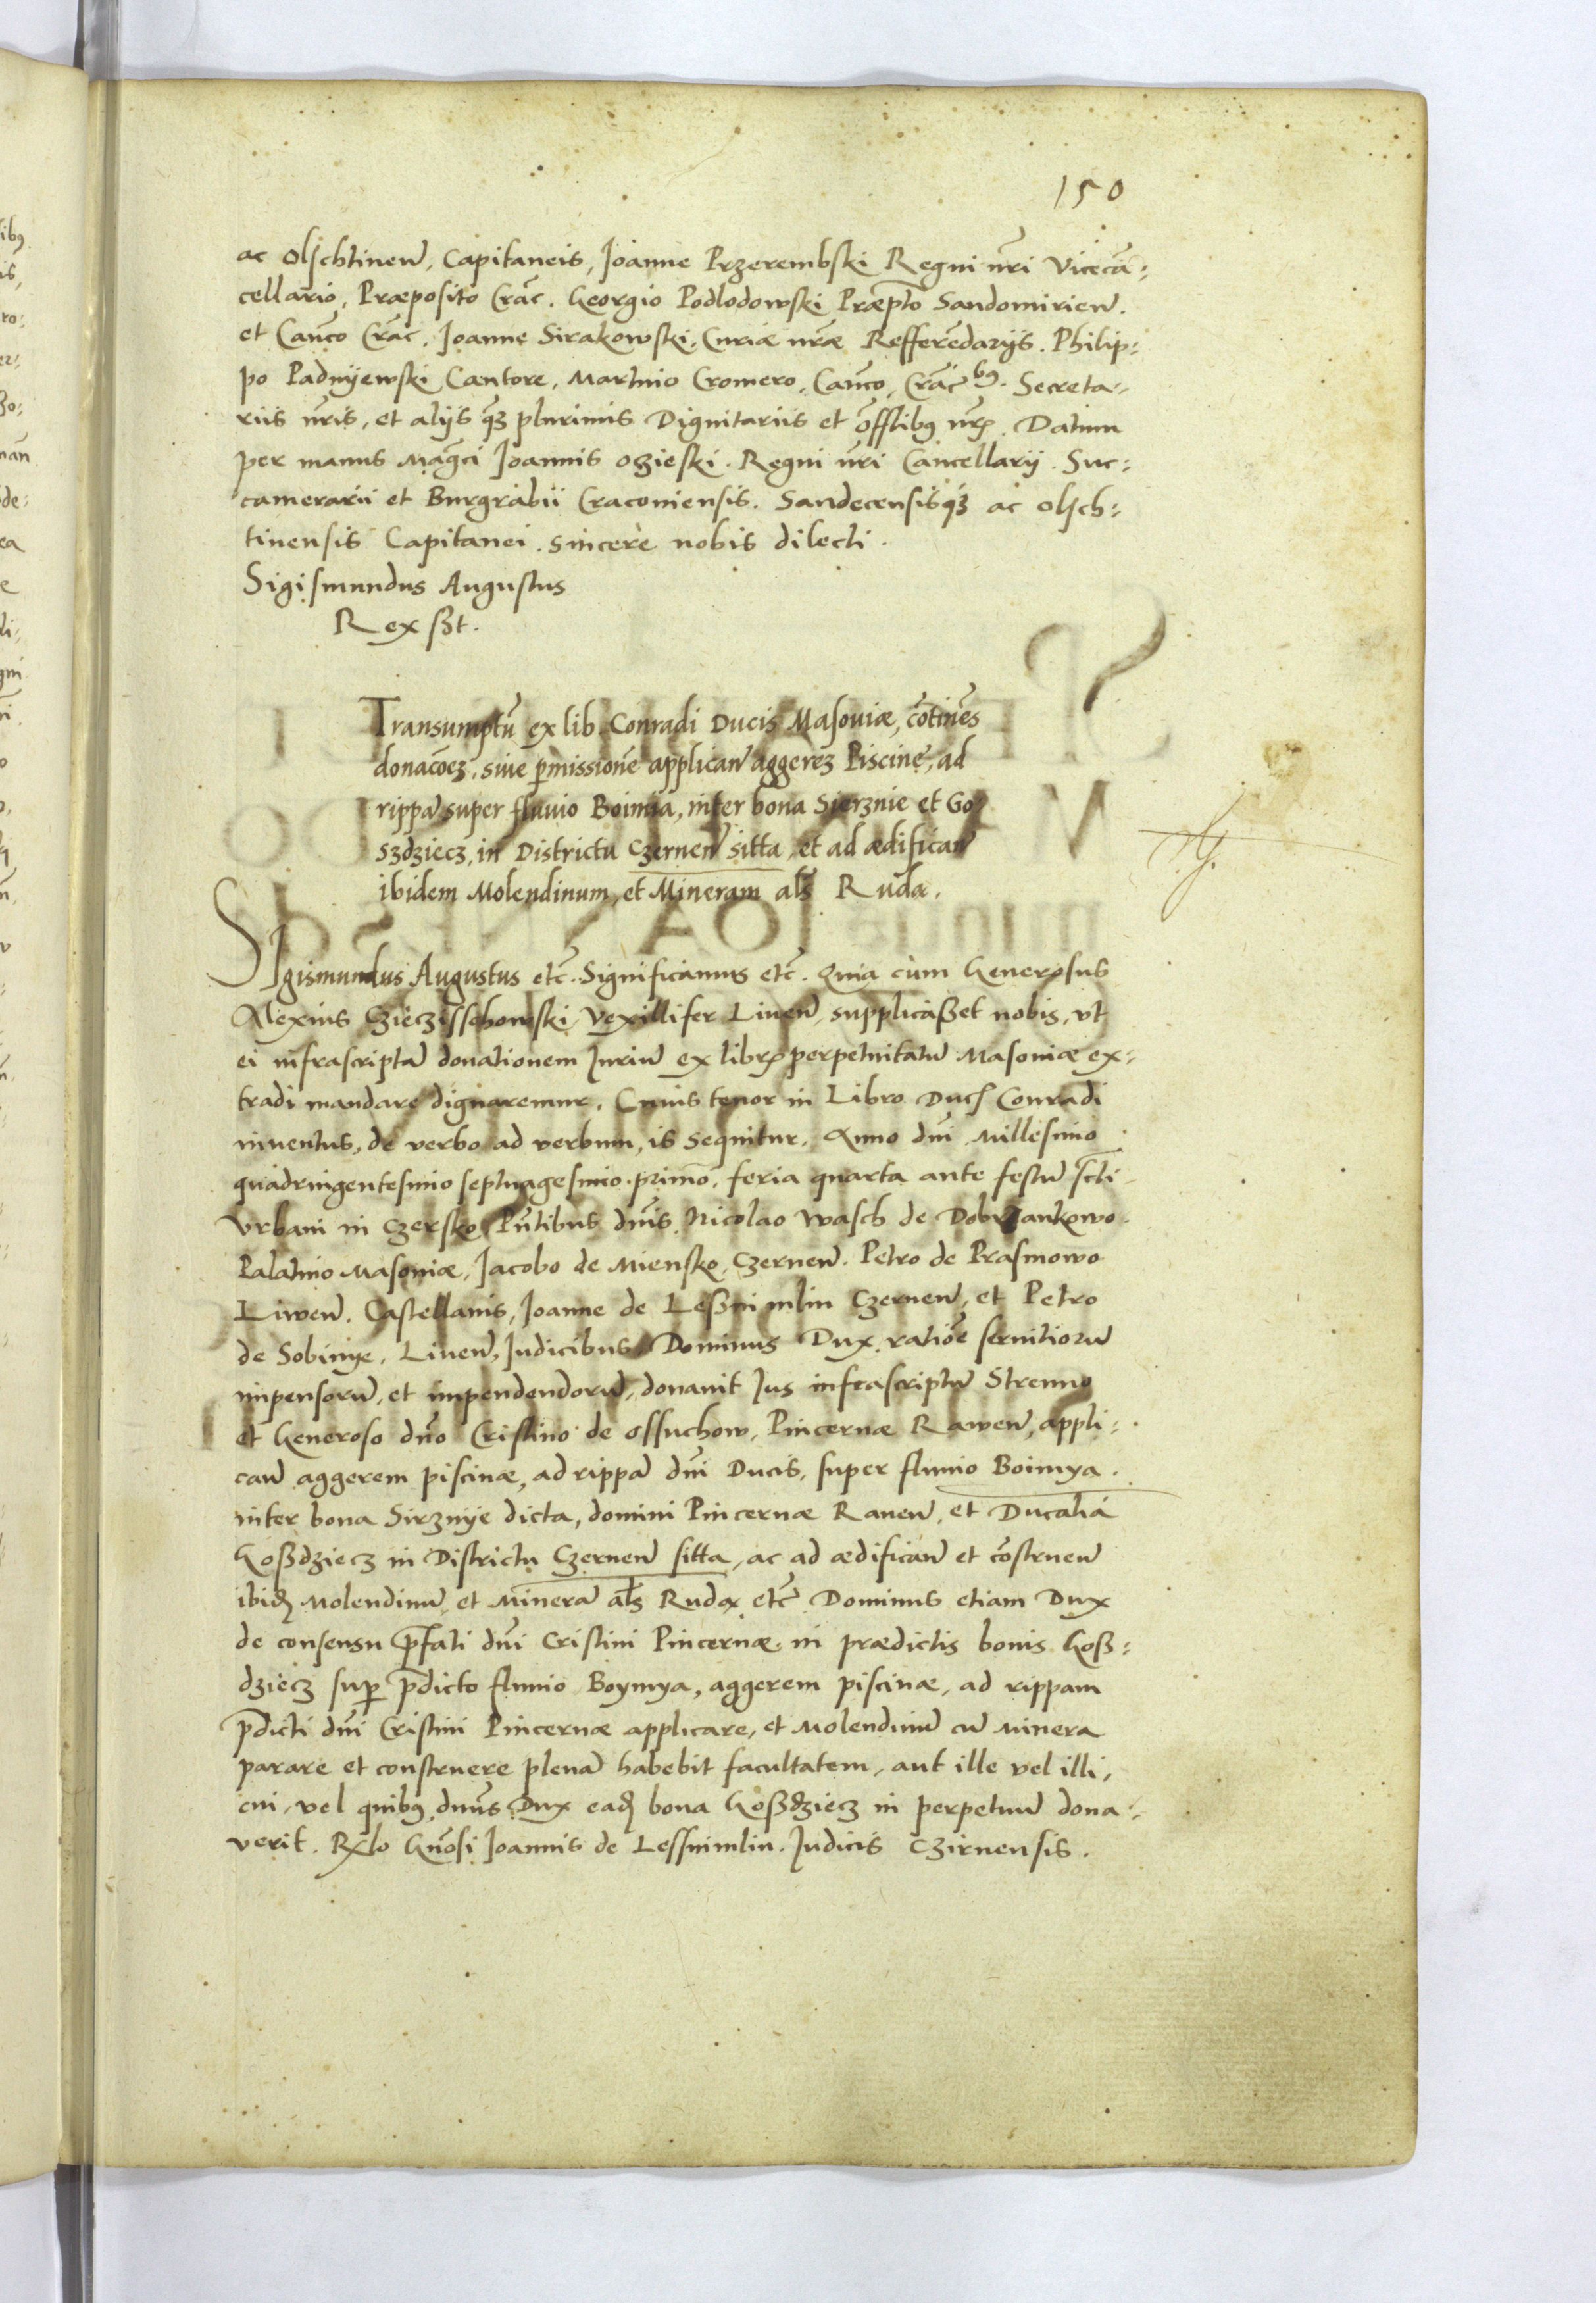 150
ac Olschtineñ, Capitaneis, Joanne Przerembski Regni nr̃i Vicecã:
cellario, Præposito Crac̃. Georgio Podlodowski Præp̃to Sandomirieñ.
et Cañco Crac̃. Joanne Sirakowski, Curiæ nr̃æ Refferẽdarijs. Philip:
po Padnyewski Cantore, Martino Cromero, Cañco, Crac̃ bꝯ. Secreta-
riis nr̃is, et alijs qꝫ plurimis Dignitariis et õfflibꝯ nr̃is. Datum
per manus Mag̃ci Joannis Ozieski. Regni nr̃i Cancellarij. Suc:
camerarii et Burgrabii Cracouiensis. Sandecensisqꝫ ac Olsch:
tinensis Capitanei. sincere nobis dilecti.
Sigismundus Augustus
Rex sst.
Transumptũ ex lib. Conradi Ducis Masouiæ, cõtinẽs
donacõeꝫ, siue ꝑmissionẽ applicañ aggereꝫ Piscine, ad
rippã super fluuio Boimia, inter bona Sierznie et Go
szdziecz, in Districtu Czerneñ sitta, et ad ædificañ
ibidem Molendinum, et Mineram als̃ Ruda.
SIgismundus Augustus etc̃. Significamus etc̃. Quia cum Generosus
Alexius Czieczisschowski Vexillifer Liueñ, supplicasset nobis, vt
ei infrascriptã donationem Juriũ ex libris perpetuitatũ Masouiæ ex:
tradi mandare dignaremur. Cuius tenor in Libro Ducis Conradi
inuentus, de verbo ad verbum, is sequitur. Anno dñi Millesimo
quadringentesimo septuagesimo primo, feria quarta ante festũ scti
Vrbani in Czersko. Pñtibus dñis Nicolao Wasch de Dobrzankowo
Palatino Masouiæ, Jacobo de Miensko, Czerneñ. Petro de Prasmowo
Liweñ. Castellanis, Joanne de Lessnimlin Czerneñ, et Petro
de Sobinye, Liueñ, Judicibus Dominus Dux, ratiõe seruitiorũ
impensorũ, et impendendorũ, donauit Jus infrascriptũ Strenuo
et Generoso dño Cristino de Ossuchow, Pincernæ Raweñ, appli:
cañ aggerem piscinæ, ad rippã dñi Ducis, super fluuio Boimya.
inter bona Sirznye dicta, domini Pincernæ Raueñ, et Ducalia
Gossdziecz in Districtu Czerneñ sitta, ac ad ædificañ et cõstrueñ
ibidẽ Molendinũ, et Minerã als̃ Ruda, etc̃ Dominus etiam Dux
de consensu p̃fati dñi Cristini Pincernæ in prædictis bonis Goss:
dziecz suꝑ p̃dicto fluuio Boymya, aggerem piscinæ, ad rippam
p̃dicti dñi Cristini Pincernæ applicare, et Molendinũ cũ Minera
parare et construere plenã habebit facultatem, aut ille vel illi,
cui, vel quibꝯ dñus Dux eadẽ bona Gossdziecz in perpetuũ dona:
verit. Rlo Gñosi Joannis de Lessnimlin. Judicis Czirnensis.